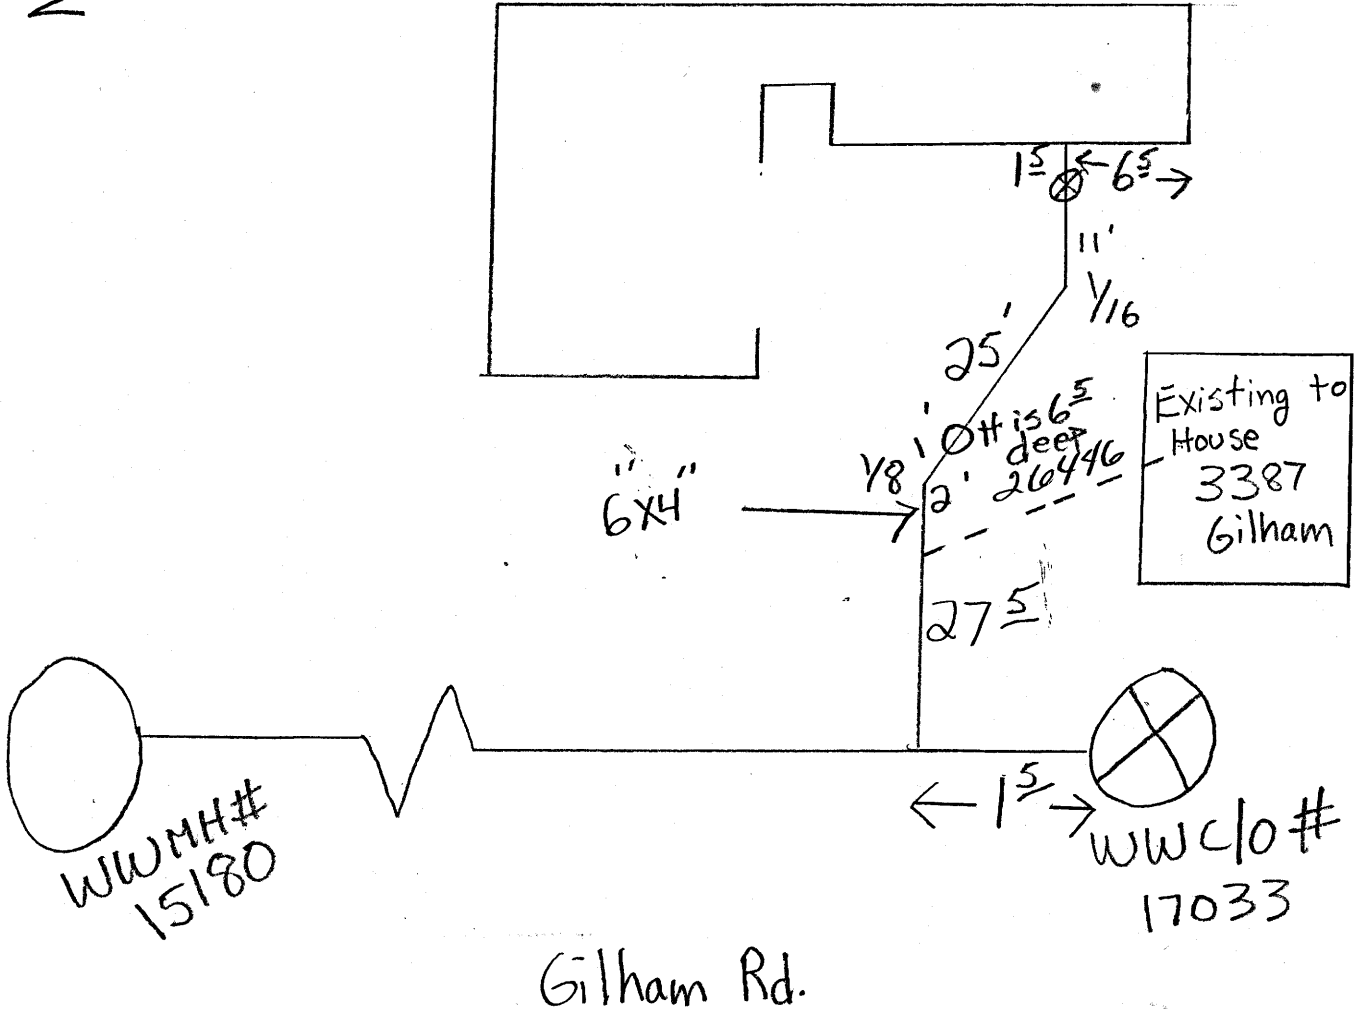 1 5
6 5
11'
1/16
25'
1'
It is 6 5
deep
26446
1/8
2'
6"x4"
Existing to
House
3387
Gilham
27 5
1 5
WWMH#
15180
WW C/O #
17033
Gilham Rd.